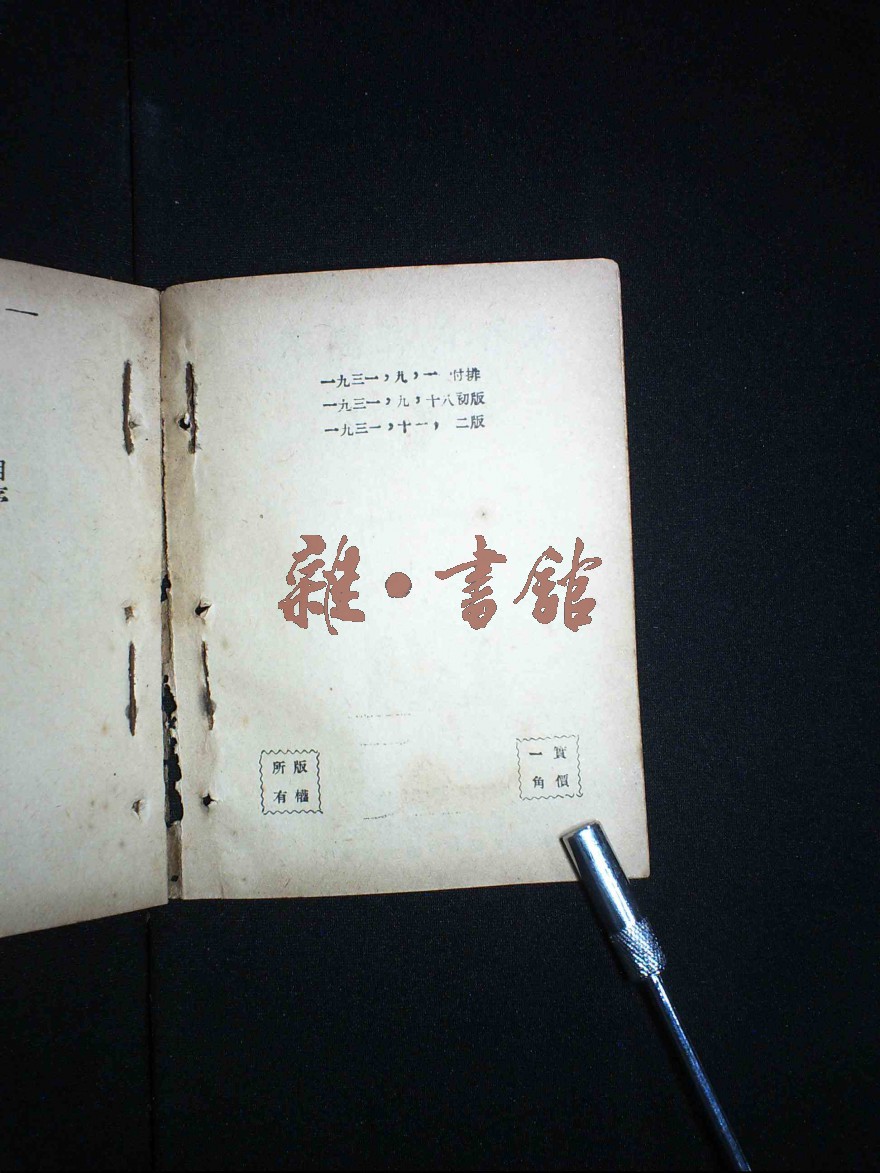 一
一九三一，九，一 付排
一九三一，九，十八初版
一九三一，十一， 二版
雜·書館
版權
所有
實價
一角